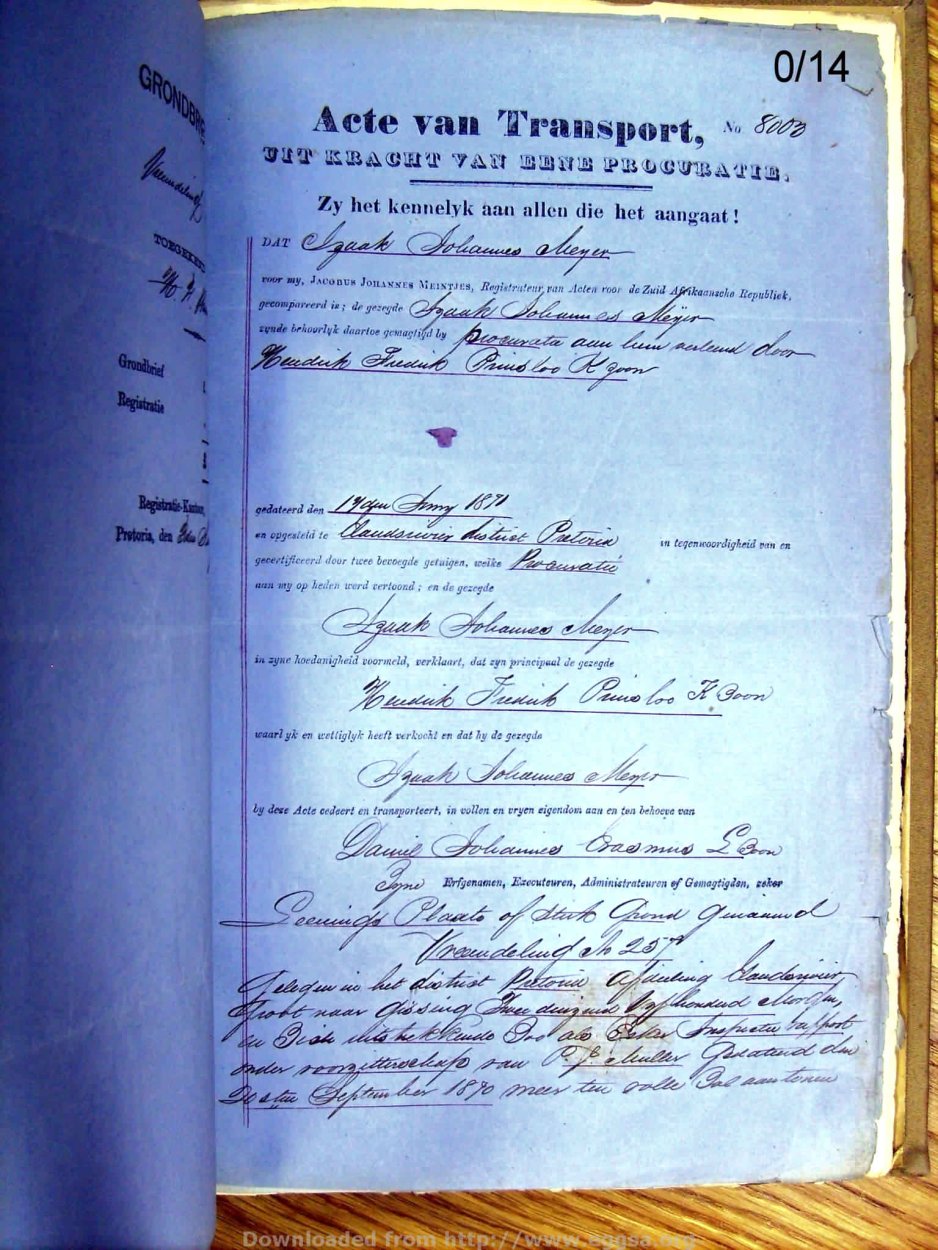 0/14
GRONDBR
Acte van Transport, No 8003
UIT KRACHT VAN EENE PROCURATIE.
Zy het kennelyk aan allen die het aangaat!
DAT Izaak Johannes Meyer
voor my, JACOBUS JOHANNES MEINTJES, Registrateur van Acten voor de Zuid Afrikaansche Republiek,
gecompareerd is; de gezegde Izaak Johannes Meyer
zynde behoorlyk daartoe gemagtigd by procuratie aan hem verleend door
Hendrik Fredrik Prinsloo K zoon
gedateerd den 1871
en opgesteld te Elandsrivier district Pretoria in tegenwoordigheid van en
gecertificeerd door twee bevoegde getuigen, welke Procuratie
aan my op heden werd vertoond; en de gezegde
Izaak Johannes Meyer
in zyne hoedanigheid voormeld, verklaart, dat zyn principaal de gezegde
Hendrik Fredrik Prinsloo K Zoon
waarlyk en wettiglyk heeft verkocht en dat hy de gezegde
Izaak Johannes Meyer
by deze Acte cedeert en transporteert, in vollen en vryen eigendom aan en ten behoeve van
Daniel Johannes Erasmus L Zoon
Zyne Erfgenamen, Executeuren, Administrateuren of Gemagtigden, zeker
Leenings Plaats of Stuk Grond Genaamd
Vreemdeling No 257
Gelegen in het district Pretoria Afdeeling Elandsrivier
Groot naar Gissing Twee duizend Vyfhonderd Morgen,
en Zich uitstrekkende Zoo als Zeker Inspectie Rapport
onder voorzitterschap van P. Muller Gedateerd den
September 1870 meer ten volle Zal aantonen
TOEGEKEN
Grondbrief
Registratie
Registratie-Kantoor,
Pretoria, den
Downloaded from http://www.eggsa.org